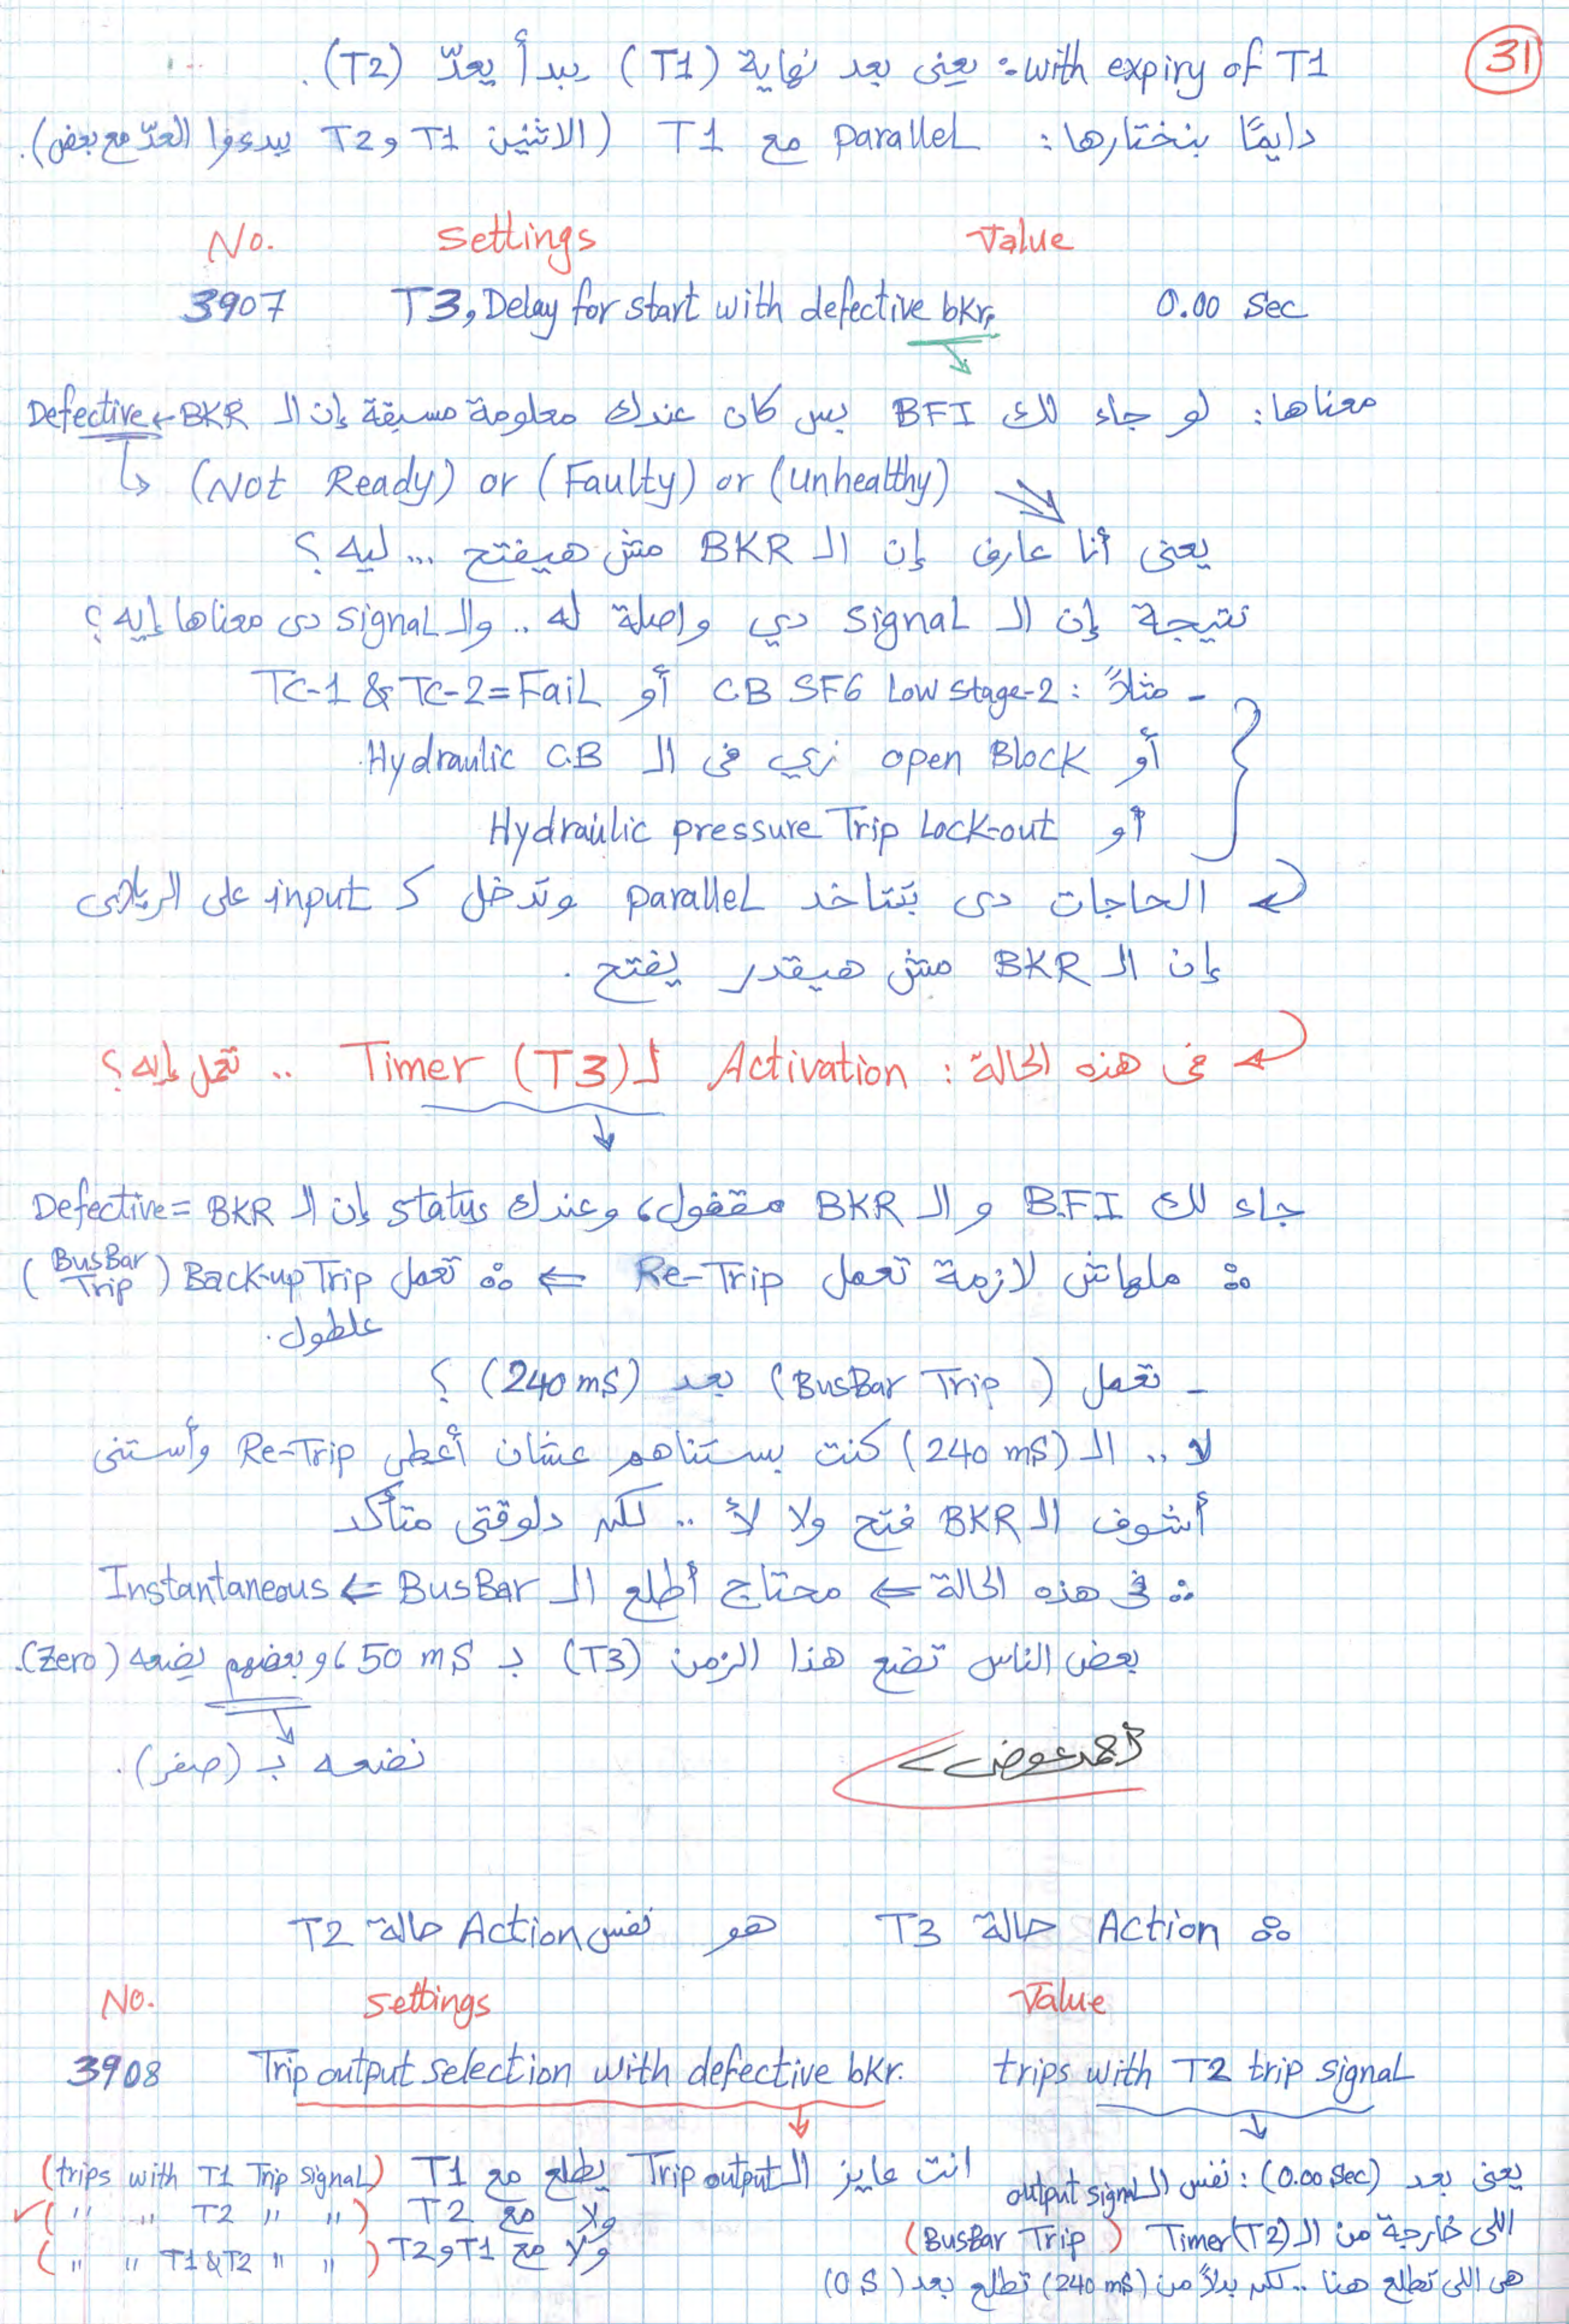 31
with expiry of T1 : يعنى بعد نهاية (T1) يبدأ يعدّ (T2).
دايمًا بنختارها : Parallel مع T1 (الاثنين T1 و T2 يبدءوا العدّ مع بعض).
No. Settings Value
3907 T3, Delay for start with defective bkr. 0.00 Sec
معناها : لو جاء لك BFI بس كان عندك معلومة مسبقة إن الـ BKR ← Defective
(Not Ready) or (Faulty) or (unhealthy)
يعنى أنا عارف إن الـ BKR مش هيفتح ... ليه ؟
نتيجة إن الـ signal دي واصلة له .. والـ signal دى معناها إيه ؟
- مثلاً : CB SF6 Low stage-2 أو TC-1 & TC-2 = Fail
أو open Block زي فى الـ Hydraulic C.B.
أو Hydraulic pressure Trip Lock-out
الحاجات دى بتتاخد parallel وتدخل كـ input على الريلاى
إن الـ BKR مش هيقدر يفتح .
فى هذه الحالة : Activation لـ Timer (T3) .. تعمل إيه ؟
جاء لك B.F.I و الـ BKR مقفول، وعندك status إن الـ BKR = Defective
∴ ملهاش لازمة تعمل Re-Trip ⇐ ∴ تعمل Back-up Trip (BusBar Trip)
علطول.
- تعمل (BusBar Trip) بعد (240 mS) ؟
لا .. الـ (240 mS) كنت بستناهم عشان أعطى Re-Trip وأستنى
أشوف الـ BKR فتح ولا لأ .. لكن دلوقتى متأكد
∴ فى هذه الحالة ⇐ محتاج أطلع الـ BusBar ⇐ Instantaneous
بعض الناس تضع هذا الزمن (T3) بـ 50 mS، وبعضهم يضعه (Zero).
نضعه بـ (صفر).
أحمد عوض
∴ Action حالة T3 هو نفس Action حالة T2
No. settings Value
3908 Trip output selection with defective bkr. trips with T2 trip signal
انت عايز الـ Trip output يطلع مع T1 (trips with T1 Trip signal)
ولا مع T2 (" " T2 " ") ✓
ولا مع T1 و T2 (" " T1 & T2 " ")
يعنى بعد (0.00 Sec) : نفس الـ output signal
اللى خارجة من الـ Timer (T2) (BusBar Trip)
هى اللى تطلع هنا .. لكن بدلاً من (240 mS) تطلع بعد (0 S)